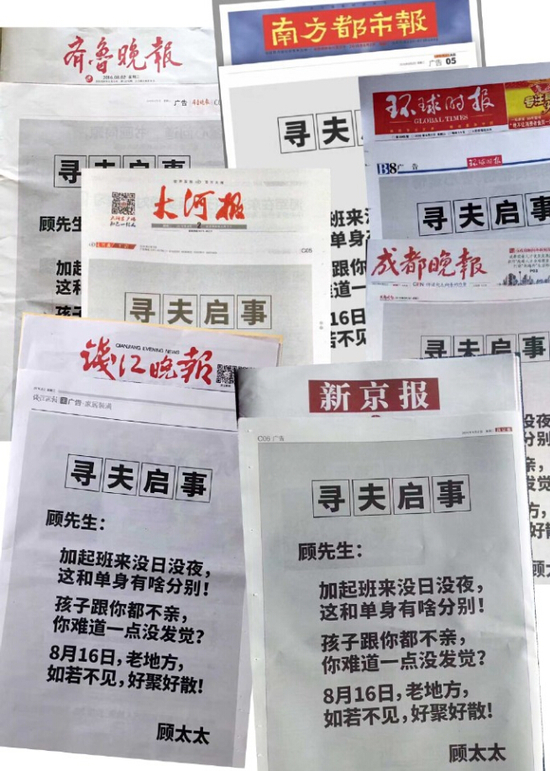 齐鲁晚报
广告
寻夫启事
顾先生：
加起班
这和单
孩子
南方都市報
广告 05
寻夫启
没夜，
分别！
不亲，
发觉？
地方，
好散！
太太
环球时报
GLOBAL TIMES
B38 广告
环球时报
寻夫启事
大河报
C05
寻夫启事
成都晚报
寻夫启事
没夜，
分别！
不亲，
发觉？
方，
散！
顾太
钱江晚报
QIANJIANG EVENING NEWS
寻夫启事
顾先生：
加起班来没日没夜，
这和单身有啥分别！
孩子跟你都不亲，
你难道一点没发觉？
8月16日，老地方，
如若不见，好聚好散！
顾太太
新京报
C06 广告
寻夫启事
顾先生：
加起班来没日没夜，
这和单身有啥分别！
孩子跟你都不亲，
你难道一点没发觉？
8月16日，老地方，
如若不见，好聚好散！
顾太太